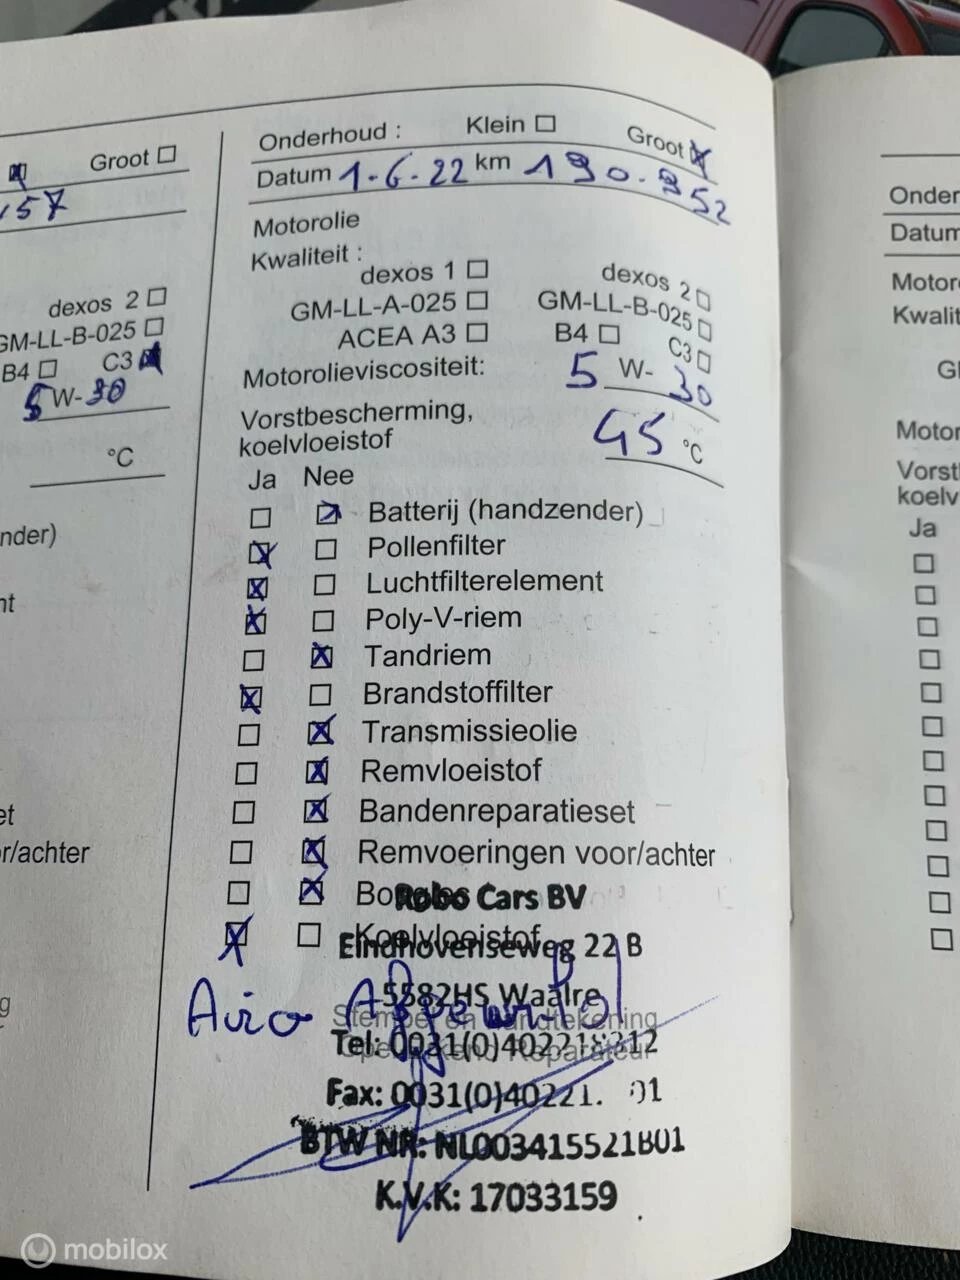 Groot
157
dexos 2
GM-LL-B-025
B4 C3
5 W-30
°C
nder)
nt
et
r/achter
g
Onderhoud : Klein Groot
Datum 1-6-22 km 190.952
Motorolie
Kwaliteit :
dexos 1 dexos 2
GM-LL-A-025 GM-LL-B-025
ACEA A3 B4 C3
Motorolieviscositeit: 5 W-30
Vorstbescherming,
koelvloeistof 45 °C
Ja Nee
Batterij (handzender)
Pollenfilter
Luchtfilterelement
Poly-V-riem
Tandriem
Brandstoffilter
Transmissieolie
Remvloeistof
Bandenreparatieset
Remvoeringen voor/achter
Bougies
Robo Cars BV
Koelvloeistof
Eindhovenseweg 22 B
5582HS Waalre
Stempel en handtekening
Tel: 0031(0)402218212
Opel Erkend Reparateur
Fax: 0031(0)40221. 01
BTW NR: NL003415521B01
K.V.K: 17033159
Onder
Datum
Motor
Kwalit
G
Motor
Vorst
koelv
Ja
mobilox